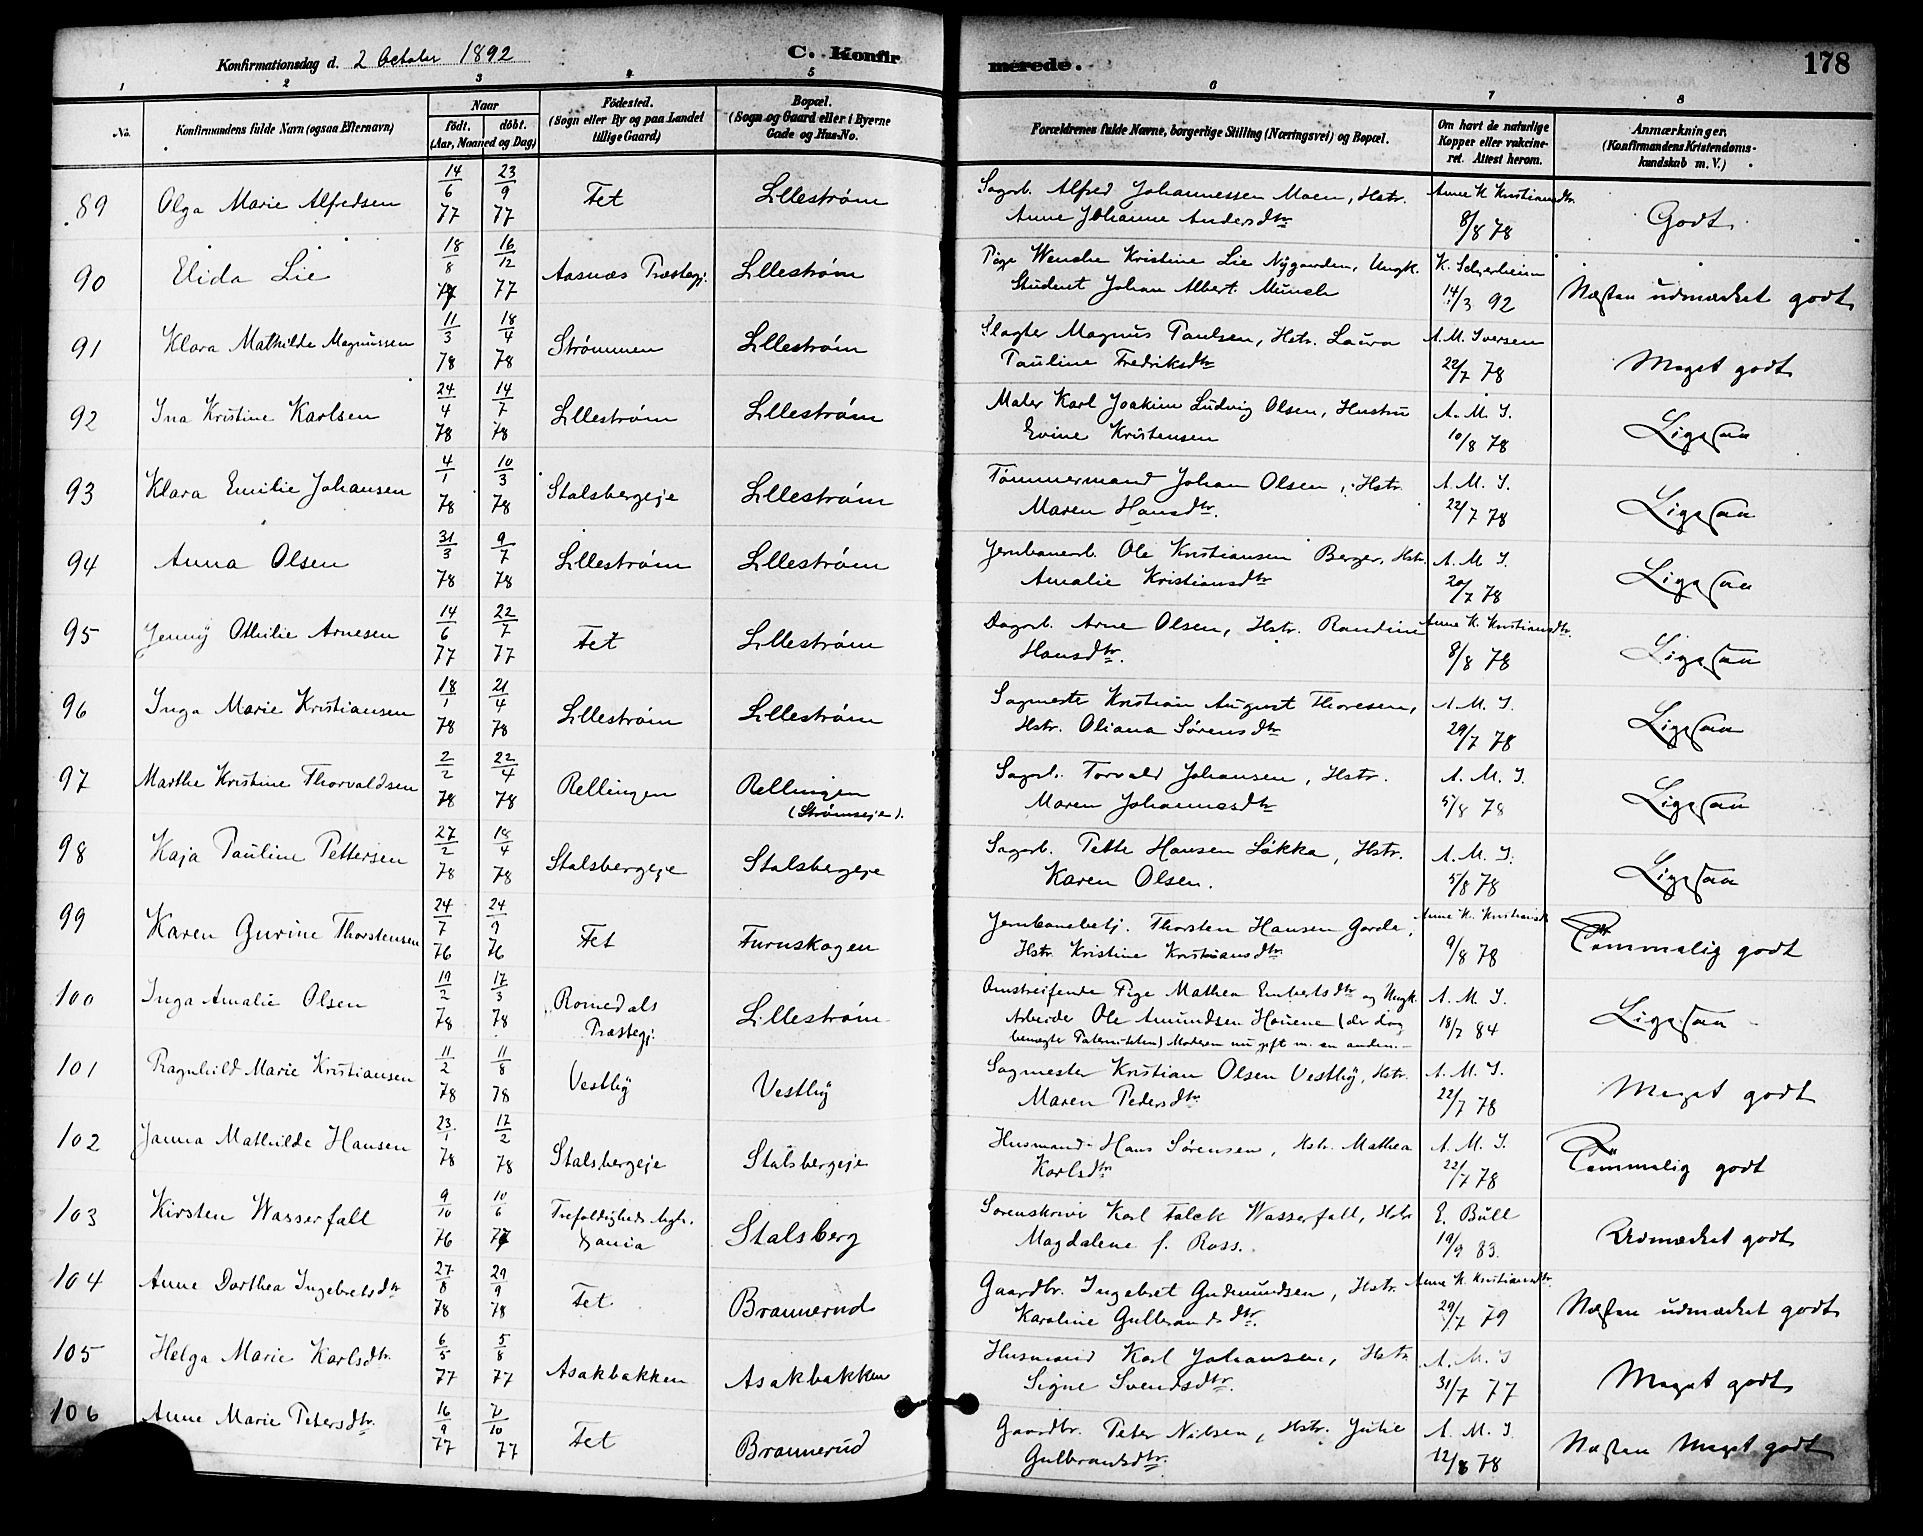 Konfirmationsdag d. 2 October 1892
C. Konfirmerede.
178
1 2 3 4 5 6 7 8
No.
Konfirmandens fulde Navn (ogsaa Efternavn)
Naar
født. døbt.
(Aar, Maaned og Dag)
Fødested.
(Sogn eller By og paa Landet
tillige Gaard)
Bopæl.
(Sogn og Gaard eller i Byerne
Gade og Hus-No.
Forældrenes fulde Navne, borgerlige Stilling (Næringsvei) og Bopæl.
Om havt de naturlige
Kopper eller vakcine-
ret. Attest herom.
Anmærkninger.
(Konfirmandens Kristendoms-
kundskab m. V.)
89 Olga Marie Alfredsen 14/6 77 23/9 77 Fet Lillestrøm Sagarb. Alfred Johannessen Moen, Hstr. Anne K. Kristiansdtr.
Anne Johanne Andersdtr 8/8 78 Godt
90 Elida Lie 18/8 77 16/12 77 Aasnæs Præstegj. Lillestrøm Pige Wenche Kristine Lie Nygaarden, Ungk.
Student Johan Albert Munch 14/3 92 Næsten udmærket godt
91 Klara Mathilde Magnussen 11/3 78 18/4 78 Strømmen Lillestrøm Slagter Magnus Paulsen, Hstr. Laura A. M. Iversen
Pauline Fredriksdtr 22/7 78 Meget godt
92 Ina Kristine Karlsen 24/4 78 14/7 78 Lillestrøm Lillestrøm Maler Karl Joakim Ludvig Olsen, Hustru A. M. I.
Evine Kristensen 10/8 78 Ligesaa
93 Klara Emilie Johansen 4/1 78 10/3 78 Stalsbergeje Lillestrøm Tømmermand Johan Olsen, Hstr. A. M. I.
Maren Hansdtr. 22/7 78 Ligesaa
94 Anna Olsen 31/3 78 9/7 78 Lillestrøm Lillestrøm Jernbanearb. Ole Kristiansen Berger, Hstr. A. M. I.
Amalie Kristiansdtr 20/7 78 Ligesaa
95 Jenny Othilie Arnesen 14/6 77 22/7 77 Fet Lillestrøm Dagarb. Arne Olsen, Hstr. Randine Anne K. Kristiansdtr.
Hansdtr. 8/8 78 Ligesaa
96 Inga Marie Kristiansen 18/1 78 21/4 78 Lillestrøm Lillestrøm Sagmester Kristian August Thoresen, A. M. I.
Hstr. Oliana Sørensdtr 29/7 78 Ligesaa
97 Marthe Kristine Thorvaldsen 2/2 78 22/4 78 Rellingen Rellingen Sagarb. Torvald Johansen, Hstr. A. M. I.
(Strømseje). Maren Johannesdtr 5/8 78 Ligesaa
98 Kaja Pauline Pettersen 27/2 78 18/4 78 Stalsbergeje Stalsbergeje Sagarb. Petter Hansen Løkka, Hstr. A. M. I.
Karen Olsen. 5/8 78 Ligesaa
99 Karen Gurine Thorstensen 24/7 76 24/9 76 Fet Furuskogen Jernbanebetj. Thorsten Hansen Garde, Anne K. Kristiansdtr
Hstr. Kristine Kristiansdtr 9/8 78 Temmelig godt
100 Inga Amalie Olsen 19/2 78 17/3 78 Romedals Lillestrøm Omstreifende Pige Mathea Embretsdtr og Ungk. A. M. I.
Præstegj. Arbeider Ole Amundsen Hauene (der dog 18/7 84 Ligesaa
benægter Paterniteten) Moderen nu gift m. en anden.
101 Ragnhild Marie Kristiansen 11/2 78 11/8 78 Vestby Vestby Sagmester Kristian Olsen Vestby, Hstr. A. M. I.
Maren Pedersdtr 22/7 78 Meget godt
102 Janna Mathilde Hansen 23/1 78 17/2 78 Stalsbergeje Stalsbergeje Husmand Hans Sørensen, Hstr. Mathea A. M. I.
Karlsdtr 22/7 78 Temmelig godt
103 Kirsten Wasserfall 9/10 76 10/6 77 Trefoldigheds Stalsberg Sorenskriver Karl Falck Wasserfall, Hstr E. Bull
Magdalene f. Ross. 19/9 83. Udmærket godt
104 Anne Dorthea Ingebretsdtr 27/8 78 29/9 78 Fet Brannerud Gaardbr. Ingebret Gudmundsen, Hstr. Anne K. Kristiansdtr.
Karoline Gulbrandsdtr. 29/7 79 Næsten udmærket godt
105 Helga Marie Karlsdtr. 6/5 77 5/8 77 Asakbakken Asakbakken Husmand Karl Johansen, Hstr. A. M. I
Signe Svendsdtr. 31/7 77 Meget godt
106 Anne Marie Petersdtr. 16/9 77 /10 77 Fet Brannerud Gaardbr. Peter Nilsen, Hstr. Julie A. M. I
Gulbransdtr. 12/8 78 Næsten Meget godt